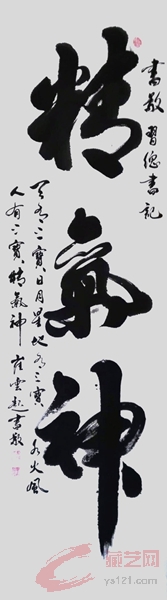 精氣神
書敬習總書記
天有三寶日月星地有三寶水火風
人有三寶精氣神崔雲起書敬
藏艺网
ys121.com